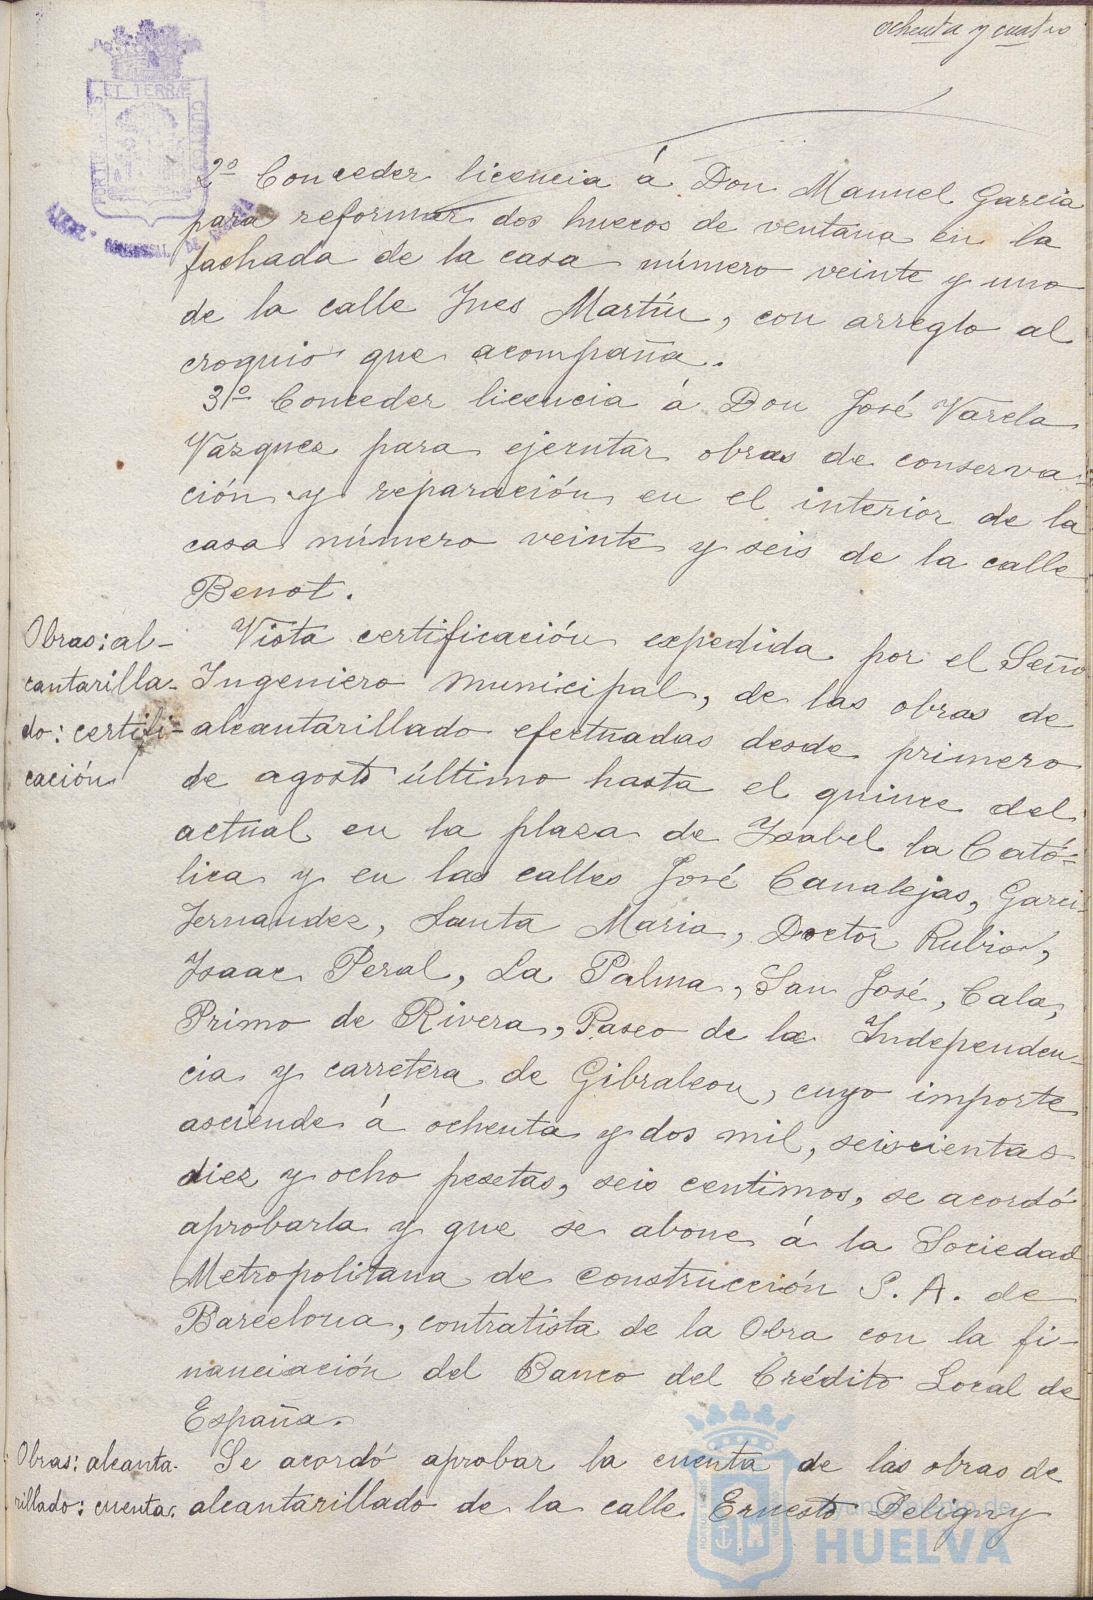 ochenta y cuatro
2º Conceder licencia á Don Manuel Garcia
para reformar dos huecos de ventana en la
fachada de la casa número veinte y uno
de la calle Ines Martín, con arreglo al
croquis que acompaña.
3º Conceder licencia á Don José Varela
Vazquez para ejecutar obras de conserva-
ción y reparación en el interior de la
casa número veinte y seis de la calle
Benot.
Obras: al-
cantarilla-
do: certifi-
cación
Vista certificación expedida por el Seño
Ingeniero municipal, de las obras de
alcantarillado efectuadas desde primero
de agosto último hasta el quince del
actual en la plaza de Isabel la Cató-
lica y en las calles José Canalejas, Garci-
Fernandez, Santa Maria, Doctor Rubio,
Isaac Peral, La Palma, San José, Cala,
Primo de Rivera, Paseo de la Independen-
cia y carretera de Gibraleon, cuyo importe
asciende á ochenta y dos mil, seiscientas
diez y ocho pesetas, seis centimos, se acordó
aprobarla y que se abone á la Sociedad
Metropolitana de construcción S. A. de
Barcelona, contratista de la Obra con la fi-
nanciación del Banco del Crédito Local de
España.
Obras: alcanta-
rillado: cuenta.
Se acordó aprobar la cuenta de las obras de
alcantarillado de la calle Ernesto Deligny
Ayuntamiento de
HUELVA